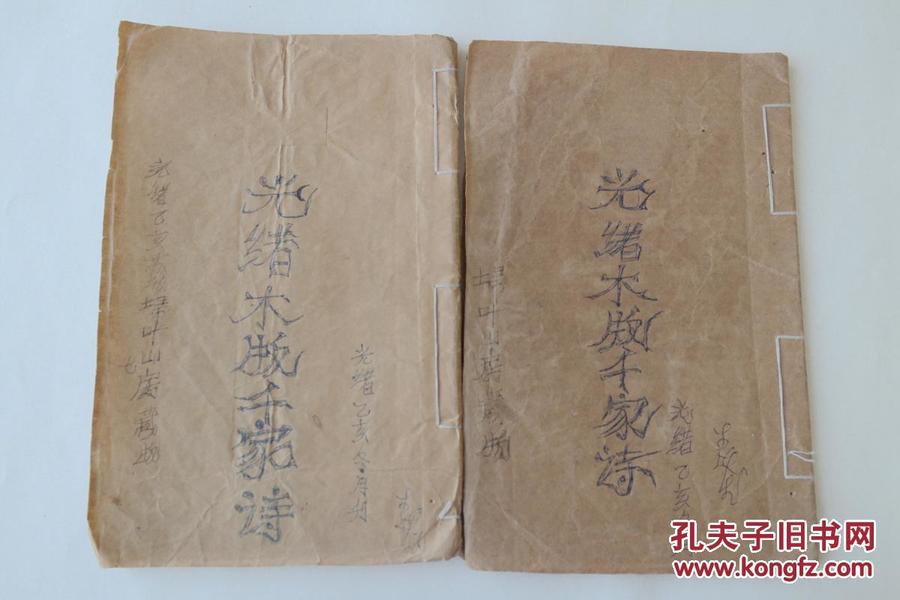 光绪木版千家诗
光绪乙亥冬月
光绪乙亥
埽叶山房藏
光绪木版千家诗
埽叶山房藏
光绪乙亥
孔夫子旧书网
www.kongfz.com